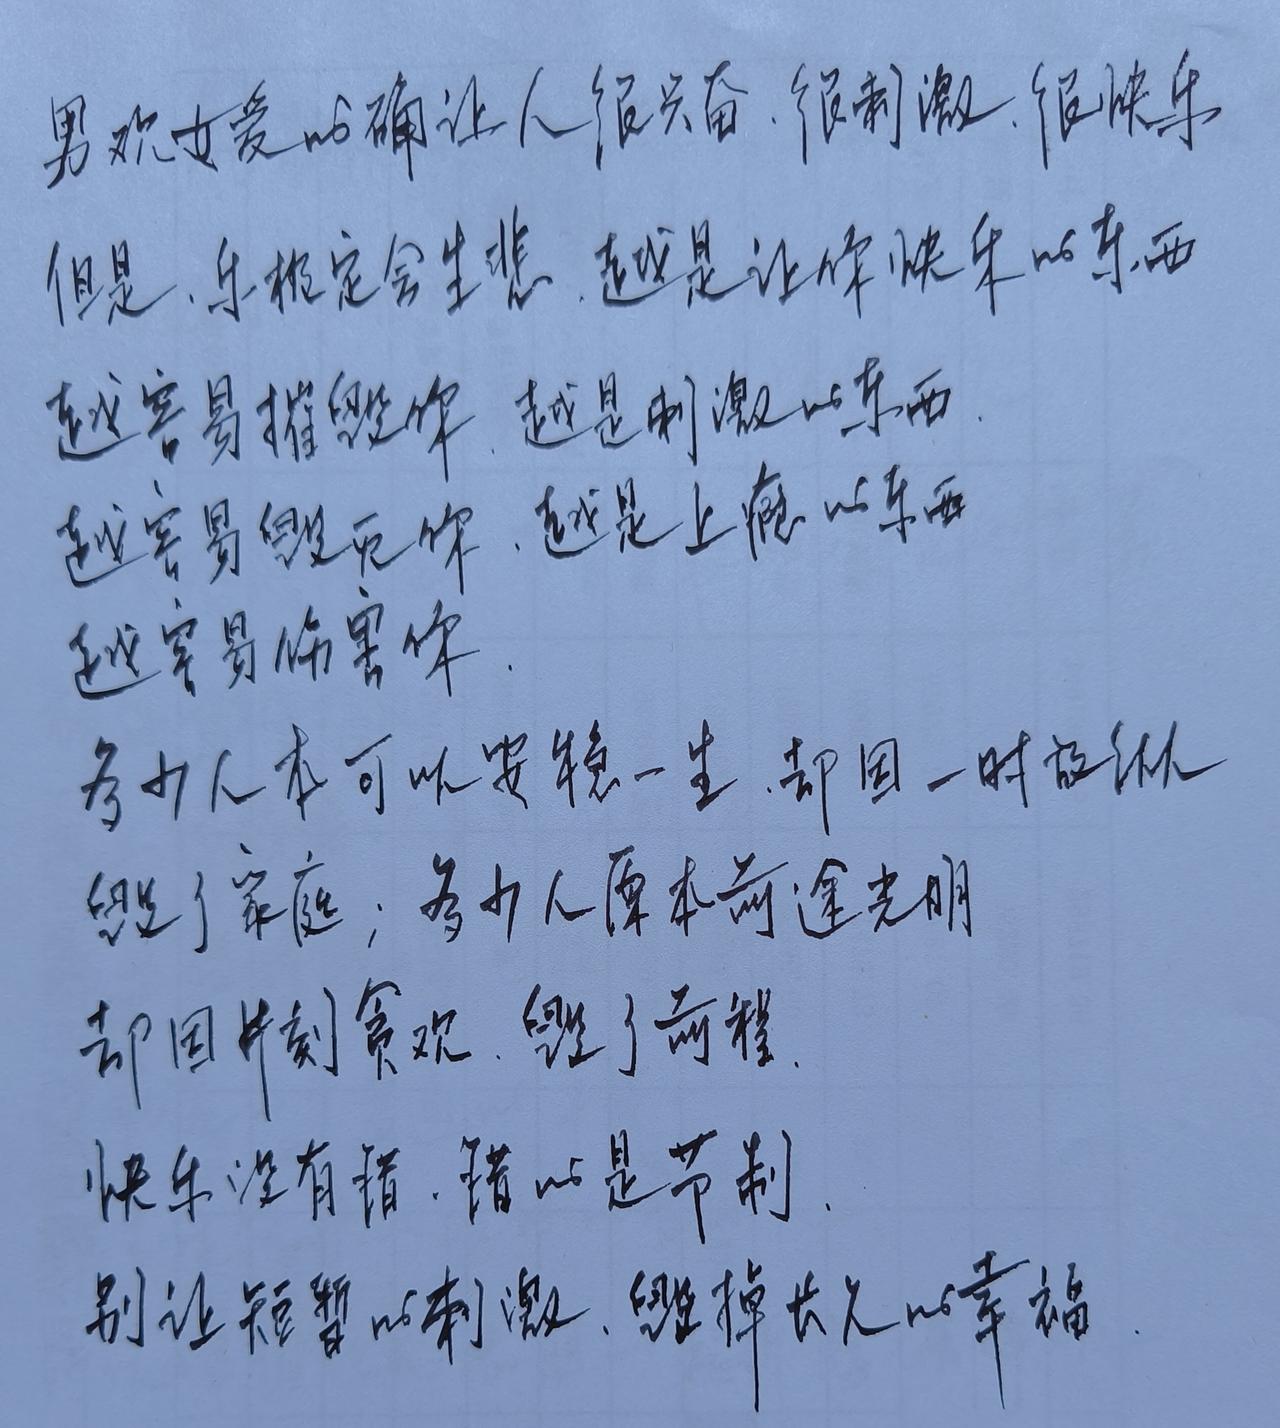 男欢女爱的确让人很兴奋、很刺激、很快乐
但是、乐极定会生悲、越是让你快乐的东西
越容易摧毁你、越是刺激的东西、
越容易毁灭你、越是上瘾的东西
越容易伤害你.
多少人本可以安稳一生、却因一时放纵
毁了家庭；多少人原本前途光明
却因片刻贪欢、毁了前程、
快乐没有错、错的是节制、
别让短暂的刺激、毁掉长久的幸福.